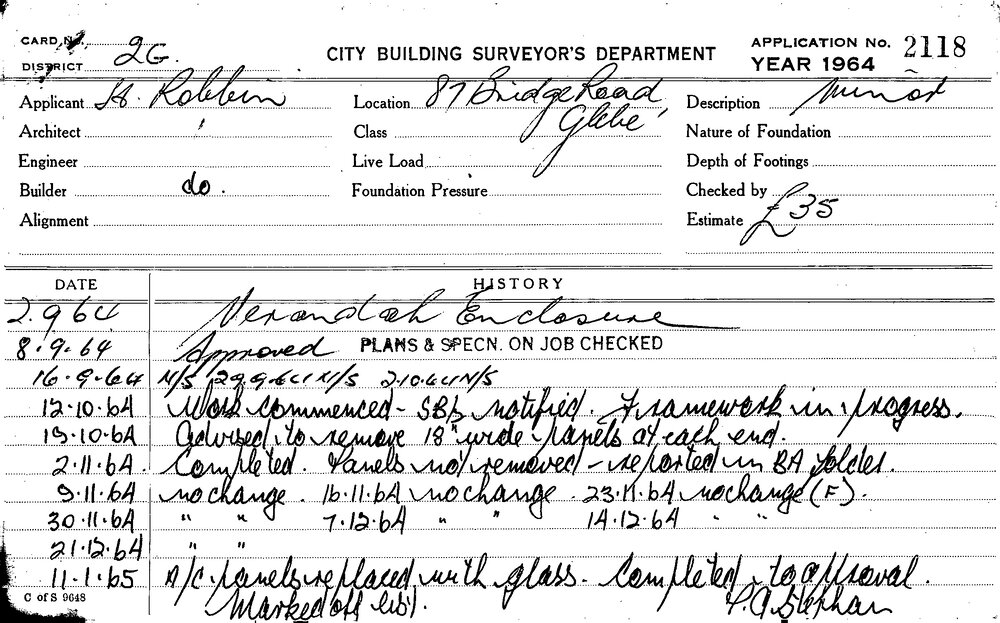 CARD No. 2G.
DISTRICT
CITY BUILDING SURVEYOR'S DEPARTMENT
APPLICATION No. 2118
YEAR 1964
Applicant H. Robbin Location 87 Bridge Road Description Minor
Glebe
Architect Class Nature of Foundation
Engineer Live Load Depth of Footings
Builder do. Foundation Pressure Checked by
Alignment Estimate £35
DATE HISTORY
2.9.64 Verandah Enclosure
8.9.64 Approved PLANS & SPECN. ON JOB CHECKED
16.9.64 N/S 29.9.64 N/S 2.10.64 N/S
12.10.64 Work commenced - SBS notified. Framework in progress.
19.10.64 Advised to remove 18" wide panels at each end.
2.11.64. Completed. Panels not removed - reported in BA folder.
9.11.64 no change. 16.11.64 no change. 23.11.64 no change (F).
30.11.64 " " 7.12.64 " " 14.12.64 " "
21.12.64 " "
11.1.65 A/C panels replaced with glass. Completed to approval.
Marked off list.
C of S 9648